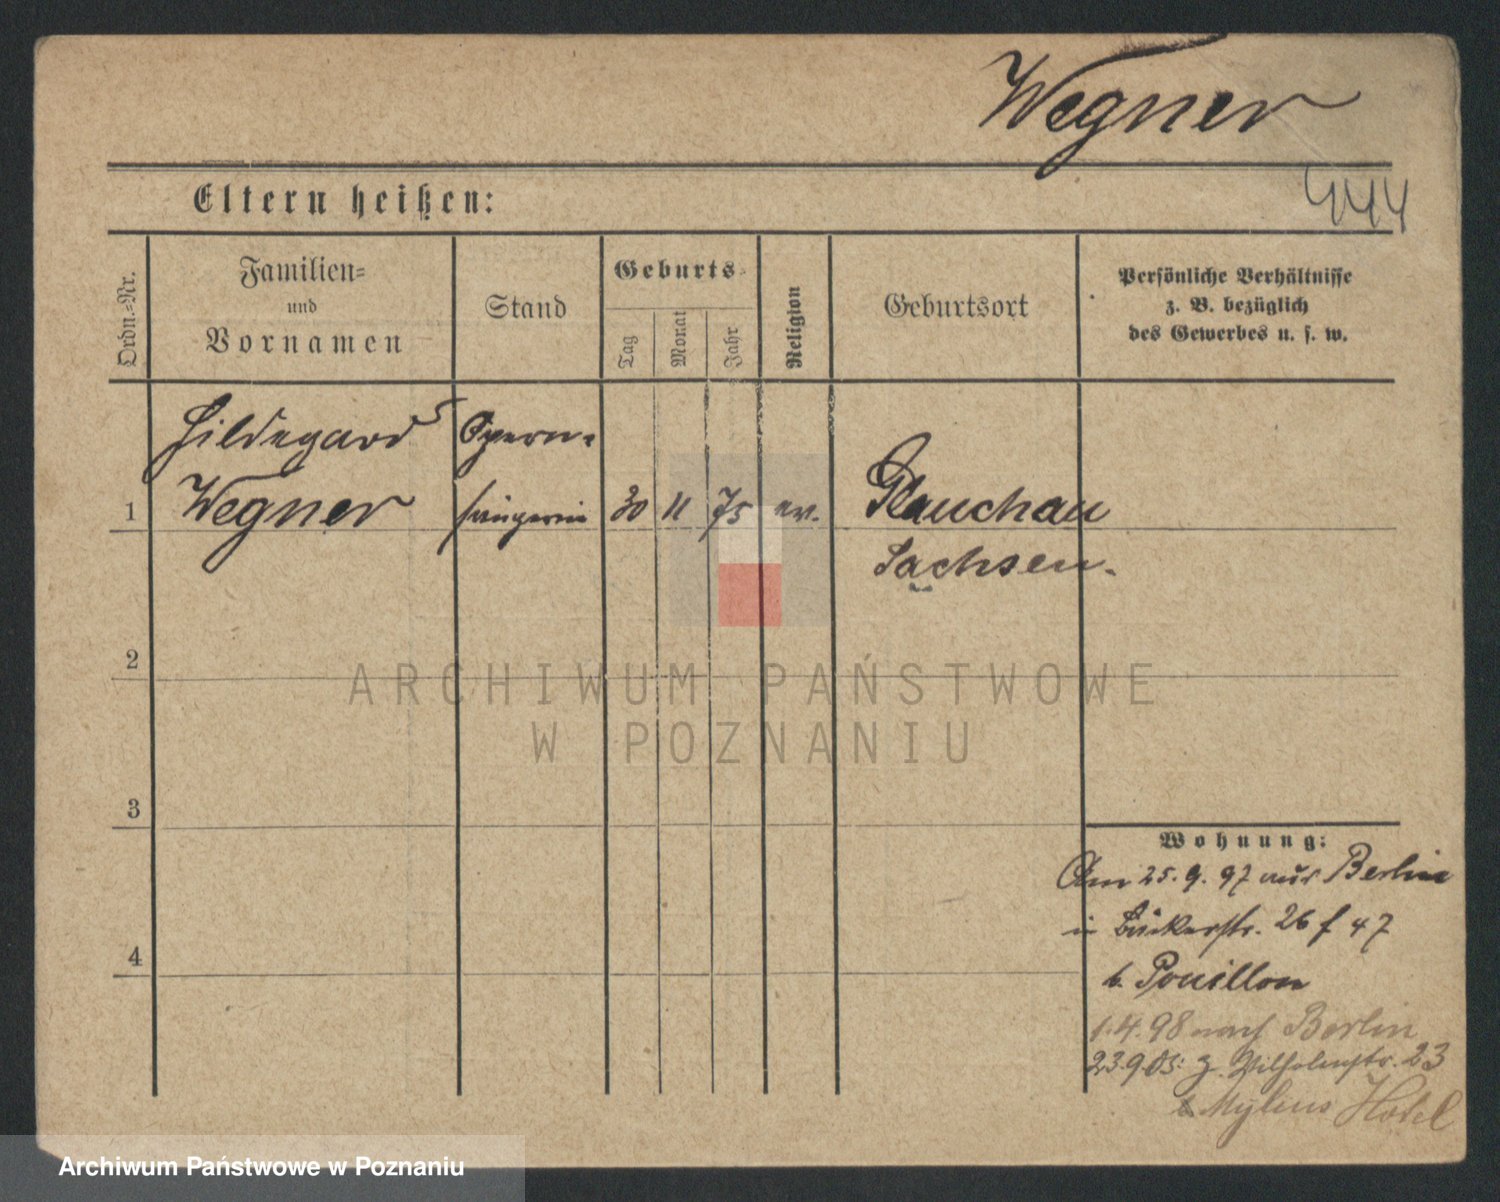 Wegner
444
Eltern heißen:
Ordn.=Nr.
Familien=
und
Vornamen
Stand
Geburts=
Tag
Monat
Jahr
Religion
Geburtsort
Persönliche Verhältnisse
z. B. bezüglich
des Gewerbes u. s. w.
Hildegard Opern-
1 Wegner sängerin 30 11 75 ev. Glauchau
Sachsen.
2
ARCHIWUM PAŃSTWOWE
W POZNANIU
3
Wohnung:
Am 25.9.97 aus Berlin
in Bäckerstr. 26 f 47
b. Pouillon
4
1.4.98 nach Berlin
23.9.03: z. Wilhelmstr. 23
Mylius Hotel
Archiwum Państwowe w Poznaniu